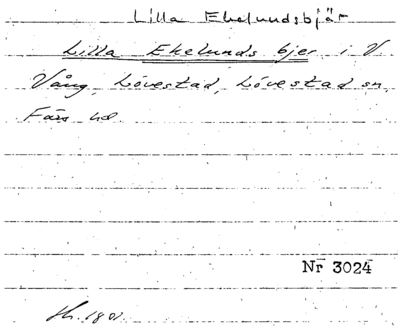 Lilla Ekelundsbjär
Lilla Ekelunds bjer i V.
Vång, Lövestad, Lövestad sn
Färs hd.
Nr 3024
1801